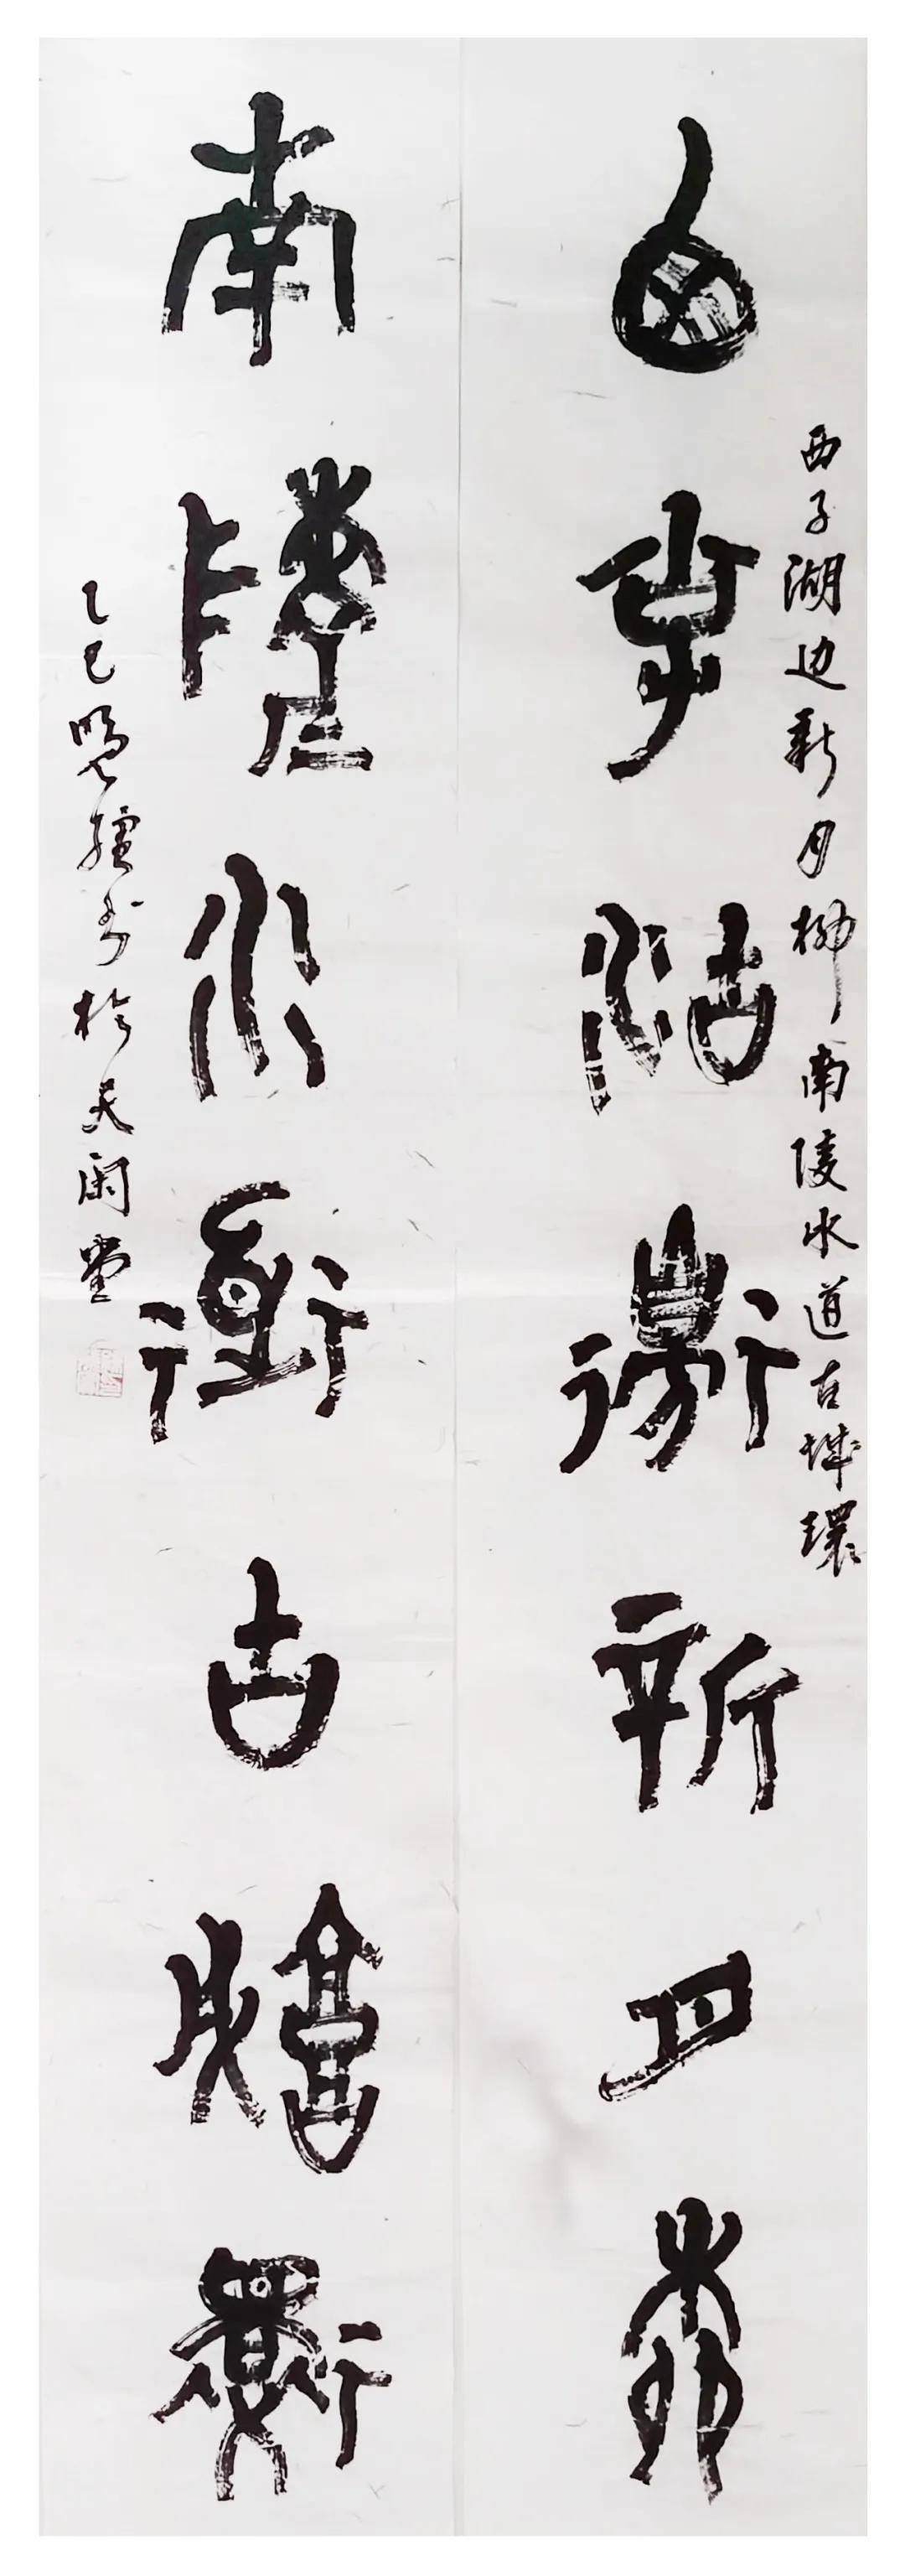 西子湖边新月柳
西子湖边新月柳南陵水道古城环
南陵水道古城环
乙巳 书于天闲堂